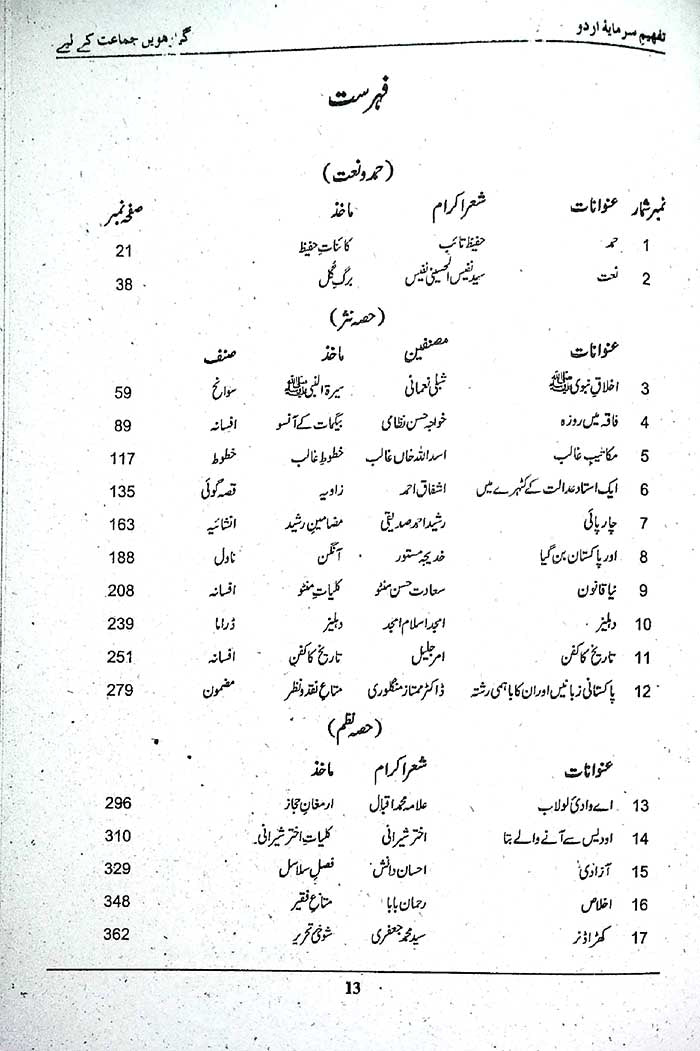 تفہیمِ سرمایۂ اردو گیارھویں جماعت کے لیے
فہرست
(حمد و نعت)
نمبر شمار عنوانات شعرا کرام ماخذ صفحہ نمبر
1 حمد حفیظ تائب کائناتِ حفیظ 21
2 نعت سید نفیس الحسینی نفیس برگِ گُل 38
(حصہ نثر)
عنوانات مصنفین ماخذ صنف
3 اخلاقِ نبوی ﷺ شبلی نعمانی سیرۃ النبی ﷺ سوانح 59
4 فاقہ میں روزہ خواجہ حسن نظامی بیگمات کے آنسو افسانہ 89
5 مکاتیبِ غالب اسد اللہ خاں غالب خطوطِ غالب خطوط 117
6 ایک استاد عدالت کے کٹہرے میں اشفاق احمد زاویہ قصہ گوئی 135
7 چارپائی رشید احمد صدیقی مضامینِ رشید انشائیہ 163
8 اور پاکستان بن گیا خدیجہ مستور آنگن ناول 188
9 نیا قانون سعادت حسن منٹو کلیاتِ منٹو افسانہ 208
10 دہلیز امجد اسلام امجد دہلیز ڈراما 239
11 تاریخ کا کفن امر جلیل تاریخ کا کفن افسانہ 251
12 پاکستانی زبانیں اور ان کا باہمی رشتہ ڈاکٹر ممتاز منگلوری متاعِ نقد و نظر مضمون 279
(حصہ نظم)
عنوانات شعرا کرام ماخذ
13 اے وادیٔ لولاب علامہ محمد اقبال ارمغانِ حجاز 296
14 او دیس سے آنے والے بتا اختر شیرانی کلیاتِ اختر شیرانی 310
15 آزادی احسان دانش فصلِ سلاسل 329
16 اخلاص رحمان بابا متاعِ فقیر 348
17 کھڑا ڈنر سید محمد جعفری شوخیٔ تحریر 362
13